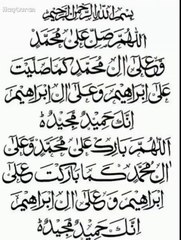 بسم الله الرحمن الرحيم
اللهم صل على محمد
وعلى ال محمد كما صليت
على إبراهيم وعلى ال إبراهيم
إنك حميد مجيد
اللهم بارك على محمد وعلى
ال محمد كما باركت على
إبراهيم وعلى ال إبراهيم
إنك حميد مجيد